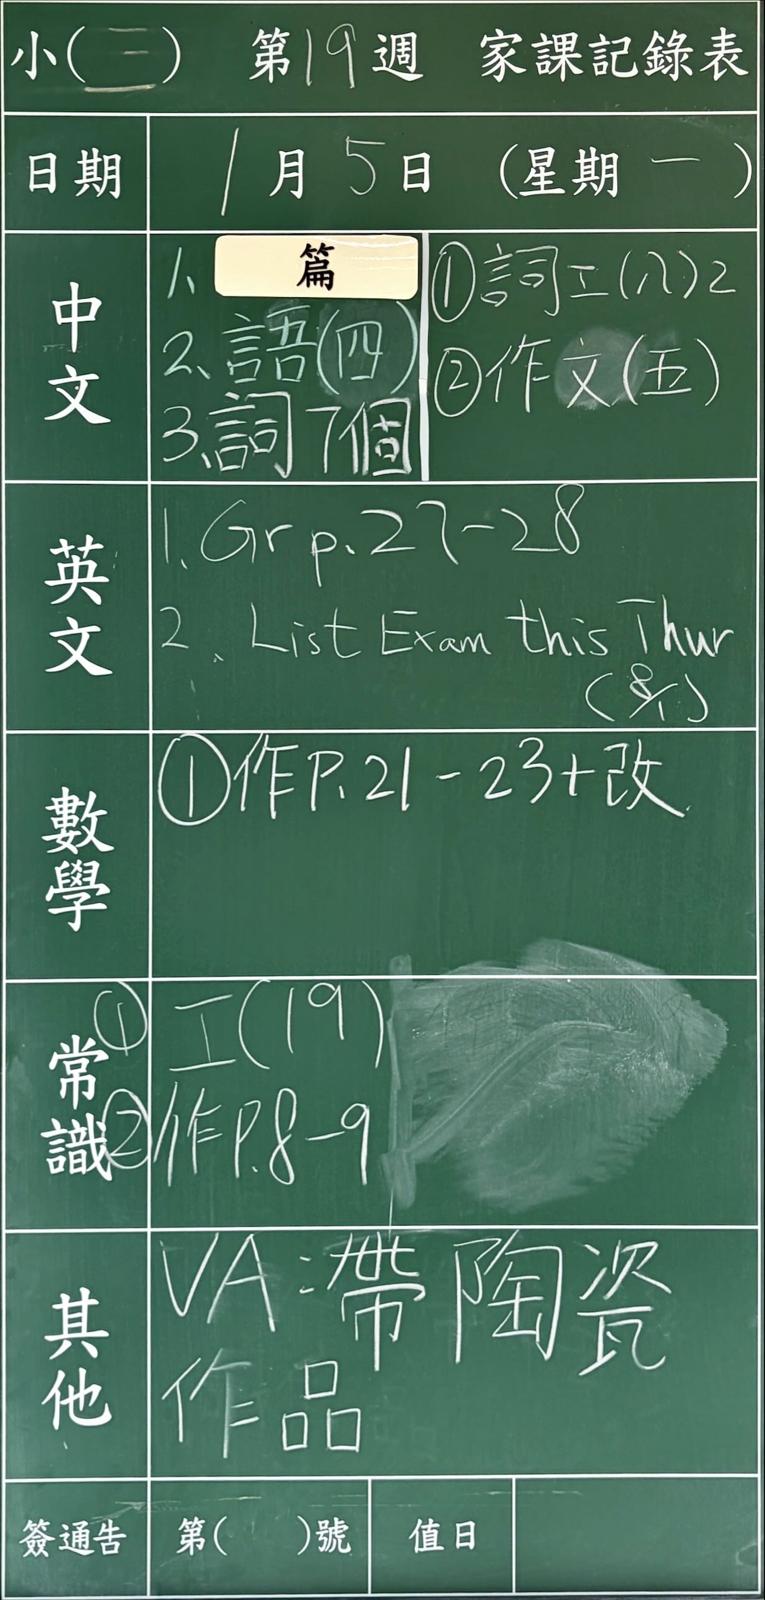 小(二) 第19週 家課記錄表
日期 1月5日 (星期一)
中文
1、篇
2、語(四)
3、詞7個
①詞工(八)2
②作文(五)
英文
1. Gr p.27-28
2. List Exam this Thur
(8/1)
數學
①作P.21-23+改
常識
①工(19)
②作P.8-9
其他
VA:帶陶瓷
作品
簽通告 第( )號 值日